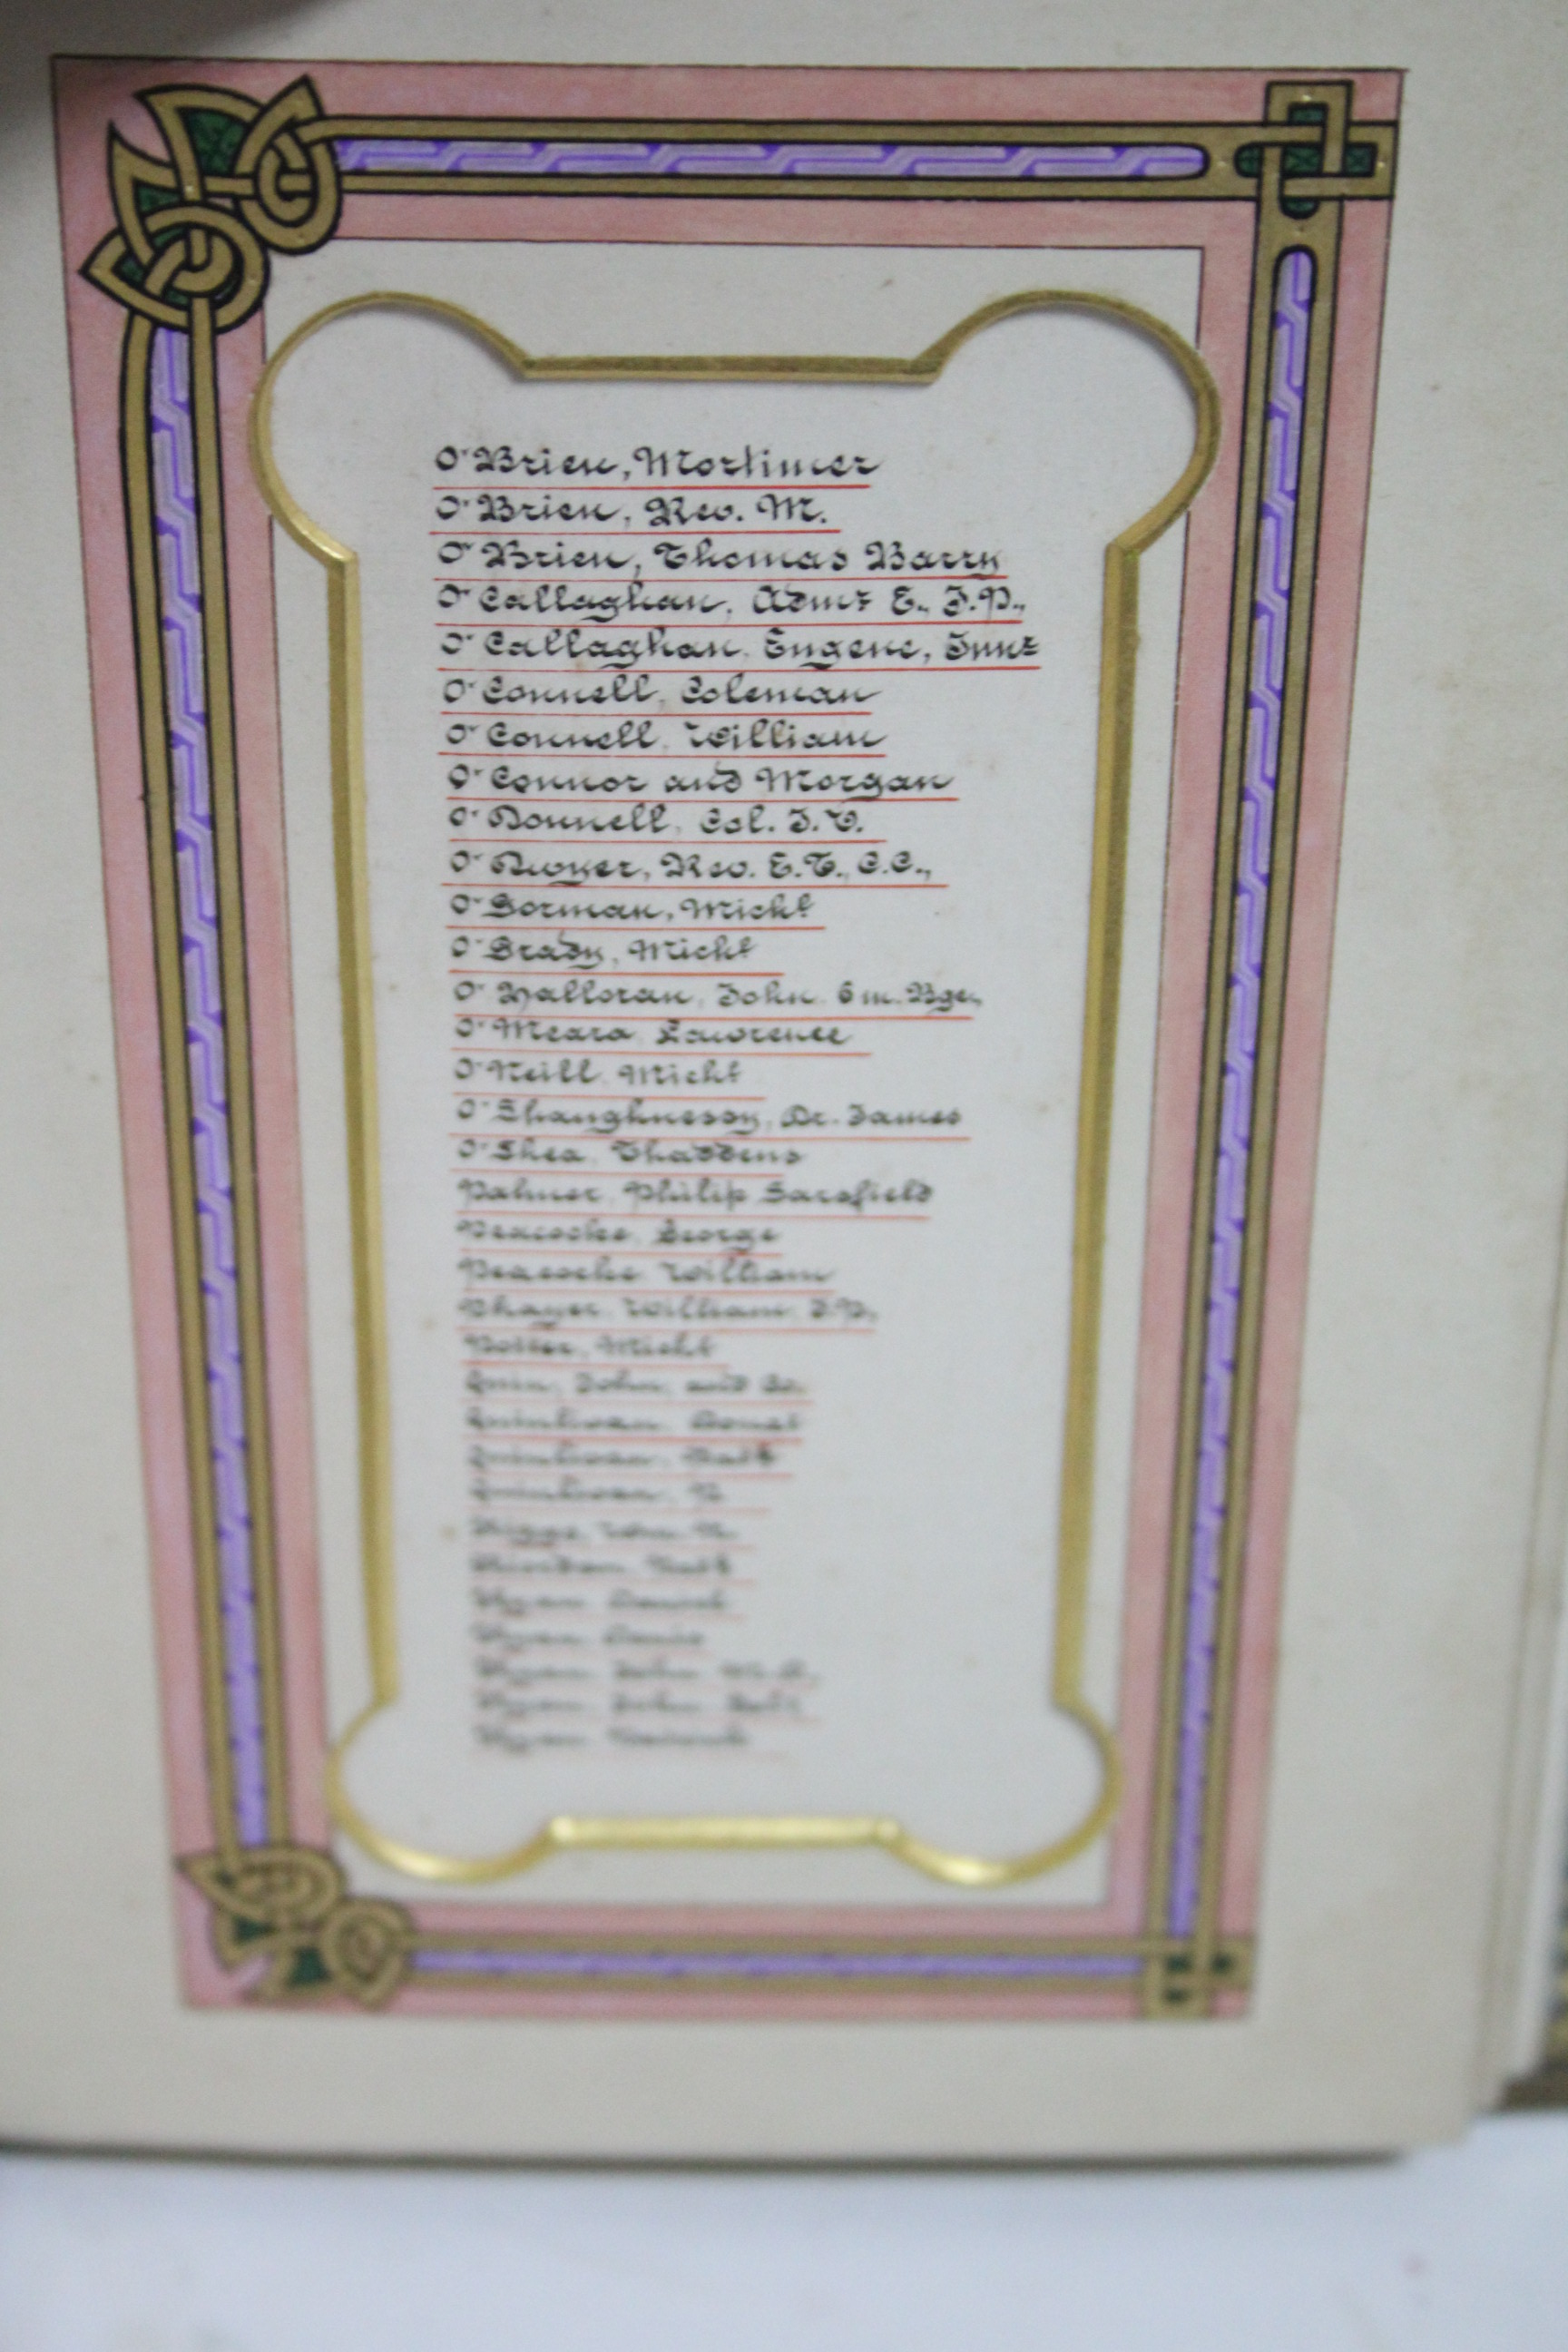 O'Brien, Mortimer
O'Brien, Rev. M.
O'Brien, Thomas Barry
O'Callaghan, Admr E., J.P.,
O'Callaghan, Eugene, Junr
O'Connell, Coleman
O'Connell, William
O'Connor and Morgan
O'Donnell, Col. J.T.
O'Dwyer, Rev. E.T., C.C.,
O'Gorman, Michl
O'Grady, Michl
O'Halloran, John, 6 m. Bge.,
O'Meara, Lawrence
O'Neill, Michl
O'Shaughnessy, Dr. James
O'Shea, Thaddeus
Palmer, Philip Sarsfield
Peacocke, George
Peacocke, William
Phayer, William, J.P.,
Potter, Michl
Quin, John, and Co.
Quinlivan, Daniel
Quinlivan, Patk
Quinlivan, P.
Riordan, Patk
Ryan, Daniel
Ryan, Denis
Ryan, John
Ryan, John
Ryan